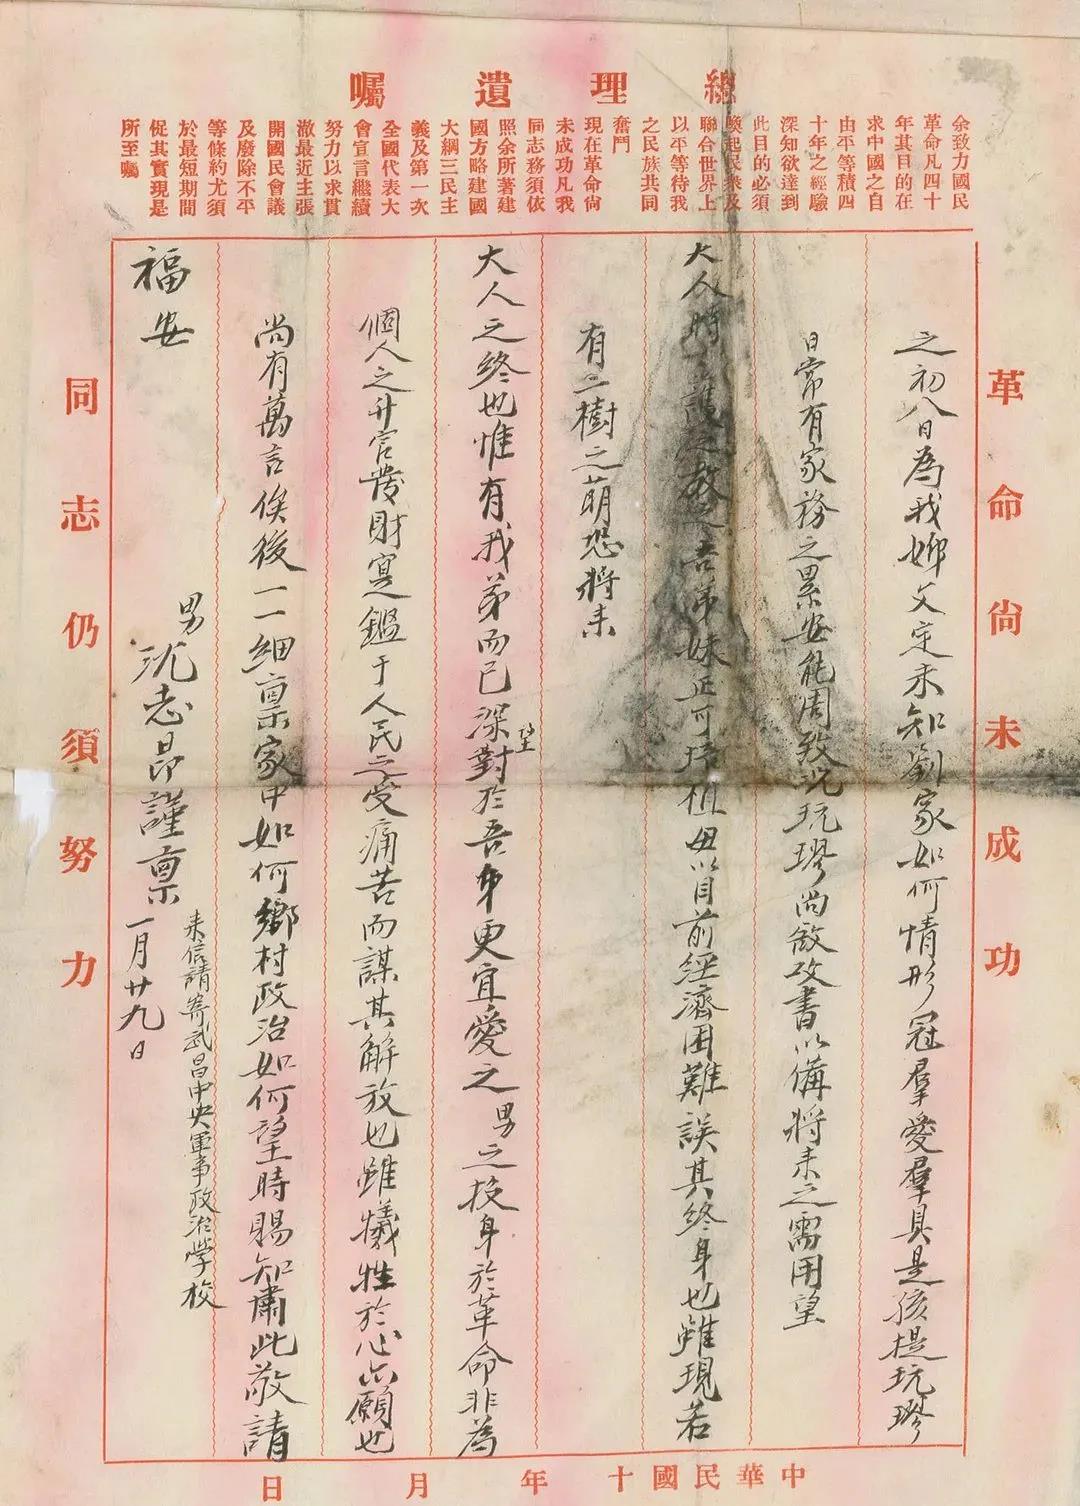 總理遺囑
余致力國民
革命凡四十
年其目的在
求中國之自
由平等積四
十年之經驗
深知欲達到
此目的必須
喚起民衆及
聯合世界上
以平等待我
之民族共同
奮鬥
現在革命尙
未成功凡我
同志務須依
照余所著建
國方略建國
大綱三民主
義及第一次
全國代表大
會宣言繼續
努力以求貫
澈最近主張
開國民會議
及廢除不平
等條約尤須
於最短期間
促其實現是
所至囑
革命尙未成功
之初八日為我姊文定未知劉家如何情形冠羣愛羣具是孩提玩璆
日常有家務之累安能周致況玩璆尚啟攻書以備將來之需用望
大人時 護之教之吾弟妹正可 祖毋以目前經濟困難誤其終身也雖現若
有二樹之萌恐將來
大人之終也惟有我弟而已深望對於吾弟更宜愛之男之投身於革命非為
個人之升官發財寔鑑于人民之受痛苦而謀其解放也雖犧牲於心亦願也
尚有萬言俟後一一細稟家中如何鄉村政治如何望時賜知肅此敬請
福安
男沈志昂謹稟
一月廿九日
來信請寄武昌中央軍事政治學校
同志仍須努力
中華民國十年月日